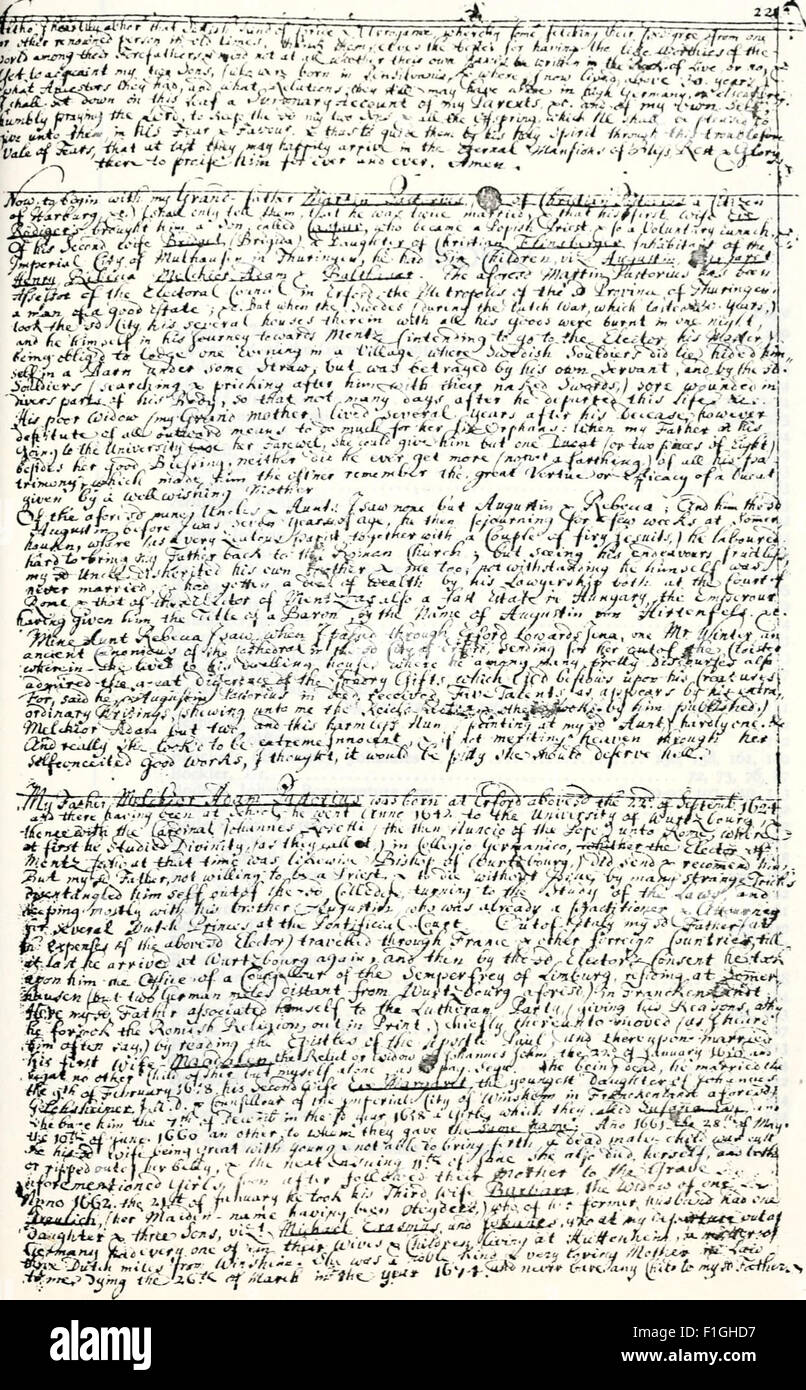 22
or other renowned person in old times, think themselves the better for having the like Worthies of the
World among their forefathers & mind not at all whether their own Name be written in the Book of Live or no,
Yet to acquaint my two Sons, who were born in Pensilvania, & where I now living above years
what Ancestors they had, and what Relations, they still may have above in high Germany, or elsewhere
I shall set down on this leaf a Summary Account of my Parents, &c. and of my own Self
humbly praying the Lord, to keep the sd my two Sons & all the Offspring, which He shall be pleased to
give unto them in his Fear & Favour, & thus to guide them by his holy Spirit through this troublesome
Vale of Tears, that at last they may happily arrive in the Eternal Mansions of Bliss, Rest & Glory
there to praise him for ever and ever. Amen.
Now, to begin with my Grand-father Martin Sartorius, of Christian a Citizen
of Harburg, &c.) I shall only tell them, that he was twice married, & that his first wife
Rödigers brought him a Son, called Caspar, who became a Popish Priest & so a Voluntary Eunuch.
Of his Second wife Bridget, (Brigida) a Daughter of Christian Inhabitant of the
Imperial City of Mulhausen in Thuringen, he had Six Children, viz. Augustin,
Henry, Rebecca, Melchior Adam & Balthasar. The aforesd Martin Sartorius has been
Assessor of the Electoral Council in Erford, the Metropolis of the sd Province of Thuringen
a man of a good Estate; &c. But when the Swedes (during the Dutch War, which lasted Years,)
took the sd City, his several houses therein with all his Goods were burnt in one night,
and he himself in his Journey towards Mentz (intending to go to the Elector, his Master)
being oblig'd to lodge one evening in a Village, where Swedish Souldiers did lie, hided him-
self in a Barn under some Straw, but was betrayed by his own Servant, and by the sd
Souldiers (searching & pricking after him with their naked Swords,) sore wounded in
divers parts of his Body, so that not many days, after he departed this life &c.
His poor Widow (my Grand mother) lived several years after his decease, however
destitute of all outward means to do much for her six Orphans: When my Father at his
going to the University took her Farewel, she could give him but one Ducat (or two pieces of Eight)
besides her good Blessing, neither did he ever get more (no not a farthing) of all his Pa-
trimony, which made him the oftner remember the great Vertue or Efficacy of a Ducat
given by a wellwishing Mother
Of the aforesd mine Uncles & Aunt I saw none but Augustin & Rebecca; And him the sd
Augustin before I was seven Years of age, he then sejourning for a few weeks at Somer-
hausen, where (as a very Zealous Papist together with a Couple of firy Jesuits,) he laboured
hard to bring my Father back to the Roman Church; but seeing his endeavours fruitless
my sd Uncle disherited his own Brother & me too; notwithstanding he himself was
never married, & had gotten a deal of Wealth by his Lawyership both at the Court of
Rome & that of the Elector of Mentz, as also a fair Estate in Hungary, the Emperour
having given him the Title of a Baron, by the Name of Augustin von Hirtenfels, &c.
Mine Aunt Rebecca I saw, when I passed through Erford towards Jena, one Mr Winter, an
ancient Canonicus of the Cathedral in the sd City of Erford, sending for her out of the Cloister
wherein she lived to his dwelling house, where he among many pretty Discourses also
admired the great Difference of the Gifts, which God bestows upon his Creatures
For, said he, Augustin Sartorius in deed received Five Talents, as appears by his extra-
ordinary Writings, (shewing unto me the & other Books by him published,)
Melchior Adam but two and this harmless Nun (pointing at my sd Aunt) hardly one. &c
And really she look'd to be extreme Innocent, & if not meriting heaven through her
selfconceited Good Works, I thought, it would be pity she should deserve hell.
My Father, Melchior Adam Sartorius was born at Erford abovesd the 22th of Septemb. 1624
and there having been at School, he went Anno 1642 to the University of Wurtzbourg &
thence with the Cardinal Johannes (he then Nuncio of the Pope) unto Rome, where
at first he studied Divinity, (as they call it,) in Collegio Germanico, whether the Elector of
Mentz (who at that time was likewise Bishop of Wurtzbourg,) did send & recomend him.
But my sd Father, not willing to be a Priest & to die without Issue, by many strange Tricks
disentangled him self out of the sd Colledge, turning to the Study of the Laws, and
keeping mostly with his brother Augustin, who was already a practitioner & Attourney
for several Dutch Princes at the Pontificial Court. Out of Italy my sd Father (at
the Expenses of the abovesd Elector) travelled through France & other forreign Countries, till
at last he arrived at Wurtzbourg again, and then by the sd Elector's Consent he took
upon him the Office of a Counsellour of the Semperfrey of Limburg, residing at Somer-
hausen (but two German miles distant from Wurtzbourg aforesd) in Franckenland.
Here my sd Father associated himself to the Lutheran Party, (giving his Reasons, why
he forsook the Romish Religion, out in Print,) chiefly thereunto moved (as I heard
him often say,) by reading the Epistles of the Apostle Paul, and thereupon married
his first Wife Magdalen, the Relict or widow of Johannes the 22d of January 1650, and
begat no other Child of her but myself alone, as pag. sequ. She being dead, he married the
the 9th of February 1658, his Second Wife Eva Margaret, the youngest daughter of Johannes
J. U. D. & Counsellour of the Imperial City of Winsheim in Franckenland aforesd
She bare him the 7th of Decemb in the sd year 1658 a Girle, which they called and
the 10th of June, 1660 an other, to whom they gave the same name; Ano 1661 the 28th of May
the his sd Wife being great with young & not able to bring forth, a dead male-child was cut
or ripped out of her belly, & the next ensuing 11th of June she also died, herself, and both
aforementioned Girls soon after followed their Mother to the Grave.
Anno 1662 the 21st of January he took his Third wife Barbara, the Widow of one
(her Maiden-name having been who of her former husband had one
daughter & three Sons, viz. Michael, Erasmus, and Johannes, who at my departure out of
Germany had every one of 'em their Wives & Children, living at Huttenheim,
three Dutch miles from Winsheim. She was a Noble Kind & very loving Mother in Law
to me, dying the 26th of March in the year 1674 and never bare any Child to my sd Father.
alamy
Image ID: F1GHD7
www.alamy.com
alamy stock photo